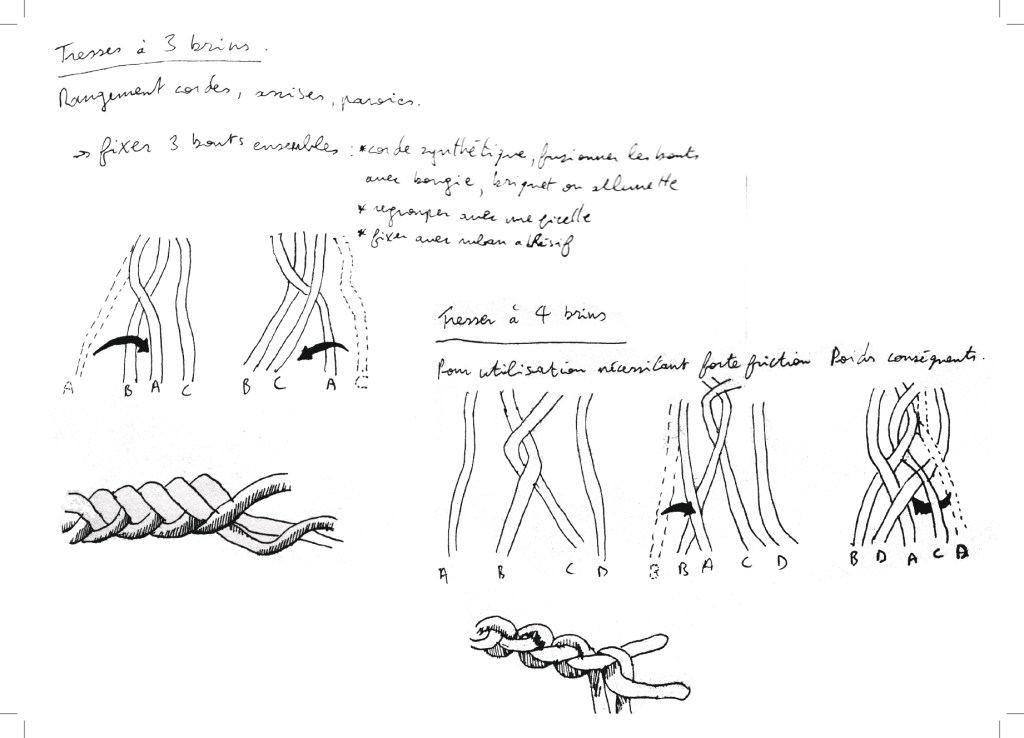 Tresses à 3 brins.
Rangement cordes, assises, parois.
→ fixer 3 bouts ensembles : * corde synthétique, fusionner les bouts
avec bougie, briquet ou allumette
* regrouper avec une ficelle
* fixer avec ruban adhésif
A B A C
B C A C
Tresser à 4 brins
Pour utilisation nécessitant forte friction Poids conséquents.
A B C D
B B A C D
B D A C D